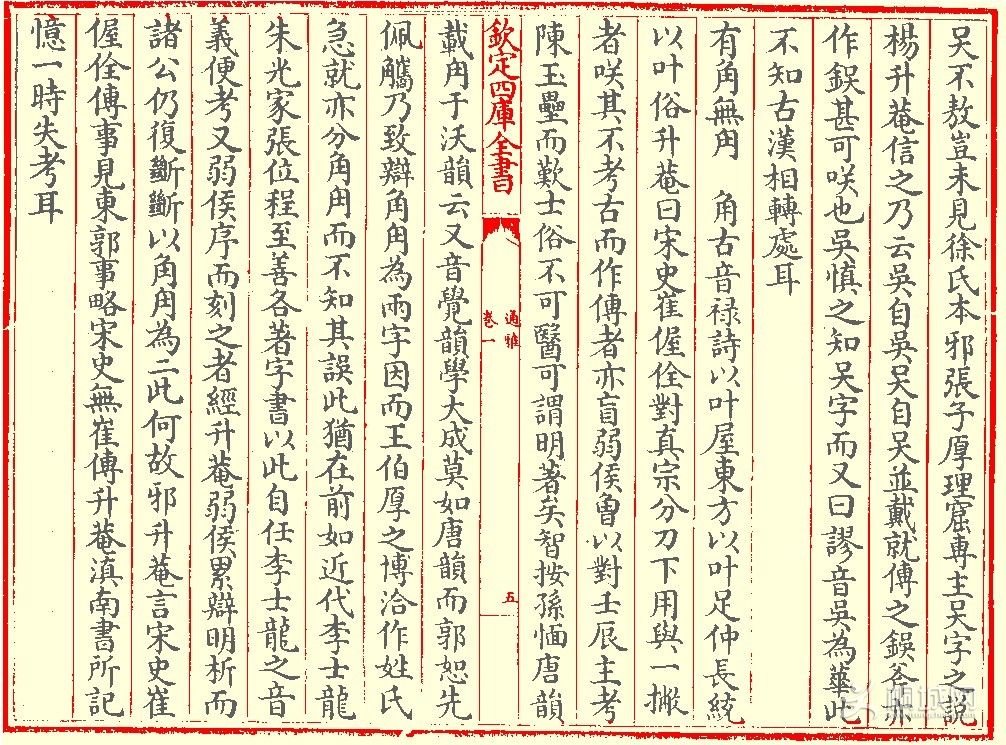 吴不敖豈未見徐氏本邪張子厚理窟専主吴字之説
楊升菴信之乃云吳自吳吴自吴並戴就傳之鋘斧亦
作鋘甚可咲也吳慎之知吴字而又曰謬音吳為華此
不知古漢相轉處耳
有角無甪　角古音禄詩以叶屋東方以叶足仲長統
以叶俗升菴曰宋史崔偓佺對真宗分刀下用與一撇
者咲其不考古而作傳者亦盲弱侯曾以對壬辰主考
陳玉壘而歎士俗不可醫可謂明著矣智按孫愐唐韻
欽定四庫全書
通雅
卷一
五
載角于沃韻云又音覺韻學大成莫如唐韻而郭恕先
佩觿乃致辯角甪為兩字因而王伯厚之博洽作姓氏
急就亦分角甪而不知其誤此猶在前如近代李士龍
朱光家張位程至善各著字書以此自任李士龍之音
義便考又弱侯序而刻之者經升菴弱侯累辯明析而
諸公仍復斷斷以角甪為二此何故邪升菴言宋史崔
偓佺傳事見東郭事略宋史無崔傳升菴滇南書所記
憶一時失考耳